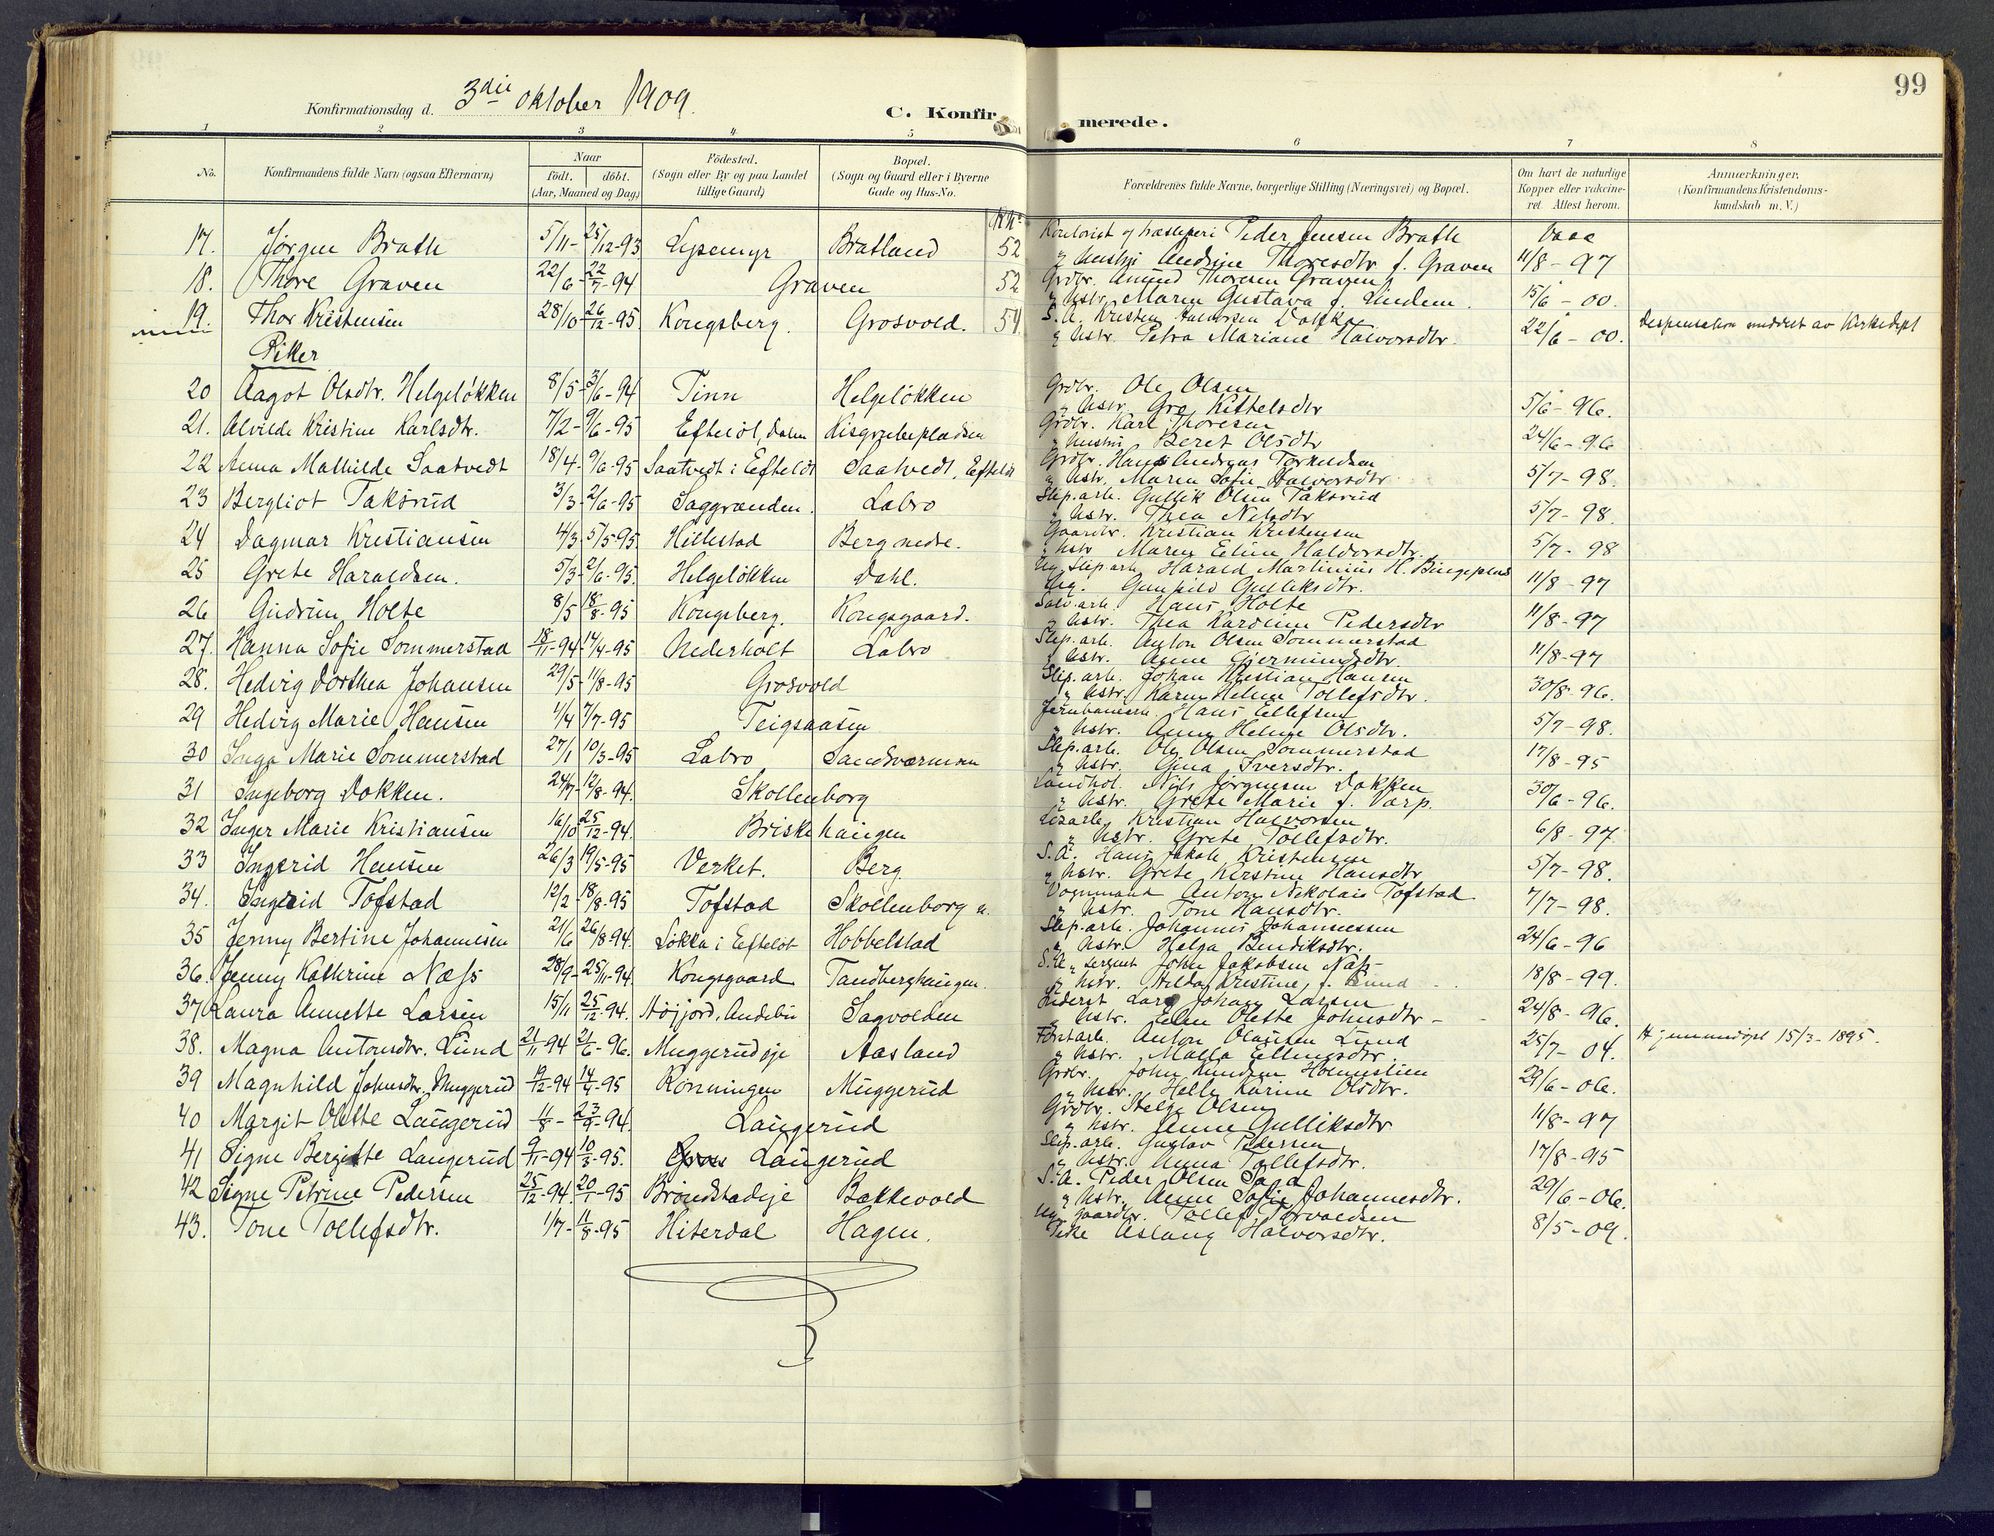 99
Konfirmationsdag d. 3die oktober 1909.
C. Konfirmerede.
1 2 3 4 5 6 7 8
No. Konfirmandens fulde Navn (ogsaa Efternavn) Naar født. døbt. (Aar, Maaned og Dag) Fødested. (Sogn eller By og paa Landet tillige Gaard) Bopæl. (Sogn og Gaard eller i Byerne Gade og Hus-No. Forældrenes fulde Navne, borgerlige Stilling (Næringsvei) og Bopæl. Om havt de naturlige Kopper eller vaccineret Attest herom. Anmerkninger. (Konfirmandens Kristendomskundskab m. V.)
17. Jørgen Brath 5/11- 25/12-93 Lysemyr Bratland 52 Peder Jensen Brath
" Hustru Andrine Thoresdtr f. Graven 11/8-97
18. Thore Graven 22/6- 22/7-94 Graven 52 Grdbr. Amund Thoresen Graven
" Hstr. Maren Gustava f. Lindem. 15/6-00.
19. Thor Kristensen 28/10- 26/12-95 Kongsberg. Grosvold. 54 S.A. Kristen Halvorsen
" Hstr. Petra Mariane Halvorsdtr. 22/6-00. Dispensation meddelt av Kirkedept
Piker
20 Aagot Olsdtr. Helgeløkken 8/5- 3/6-94 Tinn Helgeløkken Grdbr. Ole Olsen
" Hstr. Gro Kittelsdtr 5/6-96.
21. Alvilde Kristine Karlsdtr. 7/2- 9/6-95 Efteløt, Dalen Kisgrubepladsen Grdbr. Karl Thoresen
" Hustru Beret Olsdtr 24/6-96
22 Anna Mathilde Saatvedt 18/4- 9/6-95 Saatvedt i Efteløt Saatvedt, Efteløt Grdbr. Hans Andreas Torkildsen
" Hstr. Maren Sofie Halvorsdtr. 5/7-98.
23 Bergliot Taksrud 3/3- 2/6-95 Saggrenden. Labro Slip.arb. Gullik Olsen Taksrud
" Hstr. Thea Nilsdtr 5/7-98.
24 Dagmar Kristiansen 4/3- 5/5-95 Hillestad Berg nedre. Gaardbr. Kristian Kristensen
" Hstr Maren Eline Haldorsdtr. 5/7-98
25 Grete Haraldsen. 5/3- 2/6-95. Helgeløkken Dahl. Ug. Slip.arb. Harald Martinius H. Bingeplads
Pig. Gunhild Gulliksdtr. 11/8-97
26 Gudrun Holte 8/5 18/8-95 Kongsberg. Kongsgaard. Sølv.arb. Hans Holte
" Hstr. Thea Karoline Pedersdtr 11/8-97
27. Hanna Sofie Sommerstad 18/11-94 14/4-95 Nederholt Labro Slip.arb. Anton Olsen Sommerstad
" Hstr. Anne Gjermundsdtr. 11/8-97
28. Hedvig Dorthea Johansen 29/5- 11/8-95 Grosvold Slip.arb. Johan Kristian Hansen
" Hstr. Karen Helene Tollefsdtr. 30/8-96.
29 Hedvig Marie Hansen 1/4 7/7-95 Teigsaasen Hans Ellefsen
" Hstr. Anne Helene Olsdtr. 5/7-98.
30 Inga Marie Sommerstad 27/1 10/3-95 Labro Sandsværmoen Slip.arb. Ole Olsen Sommerstad
" Hstr. Gina Iversdtr. 17/8-95
31 Ingeborg Dokken. 24/7- 12/8-94. Skollenborg Landhdl. Nils Jørgensen Dokken
" Hstr. Grete Marie f. Varp. 30/6-96.
32 Inger Marie Kristiansen 16/10 25/12-94. Briskehaugen Kristian Halvorsen
" Hstr. Grete Tollefsdtr. 6/8-97.
33 Ingerid Hansen 26/3 19/5-95 Verket. Berg S.A. Hans Jakob Kristensen
" Hstr. Grete Kirstine Hansdtr 5/7-98.
34. Ingrid Tofstad 12/2 18/8-95 Tofstad Skollenborg Vognmand Anton Nikolais Tofstad
" Hstr. Tone Hansdtr. 7/7-98.
35 Jenny Bertine Johannesen 21/6 26/8-94. Løkka i Efteløt Hobbelstad Slip.arb. Johannes Johannessen
" Hstr. Helga Bendiksdtr. 24/6-96
36. Jenny Kathrine Næss 28/9- 25/11-94. Kongsgaard Tandberghaugen. S.A., sergent John Jakobsen Næss
" Hstr. Hilda Kristine, f. Lund 18/8-99.
37 Laura Annette Larsen 15/11 25/12-94. Høijord, Andebu Sagvolden Lars Johan Larsen
" Hstr. Elen Olette Johnsdtr - 24/8-96.
38. Magna Antonsdtr. Lund 21/11-94 21/6-96. Muggerudeje Aasland Anton Olausen Lund
" Hstr. Malla Ellingsdtr. 25/7-04. Hjemmedøpt 15/3-1895.
39 Magnhild Johnsdtr. Muggerud 19/12-94 14/4-95 Rønningen Muggerud Grdbr. John Knudsen Holmestien
" Hstr. Helle Karine Olsdtr. 29/6-06.
40 Margit Olette Laugerud 11/8- 23/9-94. Laugerud Grdbr. Helge Olsen
" Hstr. Jenne Gulliksdtr 11/8-97
41 Signe Bergitte Laugerud 9/11-94 10/3-95. Laugerud Slip.arb. Gustav Pedersen
" Hstr. Anna Tollefsdtr. 17/8-95
42 Signe Petrine Pedersen 25/12-94. 20/1-95 Brøndstadeje Bakkevold S.A. Peder Olsen
" Hstr. Anne Sofie Johannesdtr. 29/6-06.
43. Tone Tollefsdtr. 1/7- 11/8-95 Hiterdal Hagen. Ug. Gaardbr. Tollef Torvaldsen
Pike Aslaug Halvorsdtr. 8/5-09.